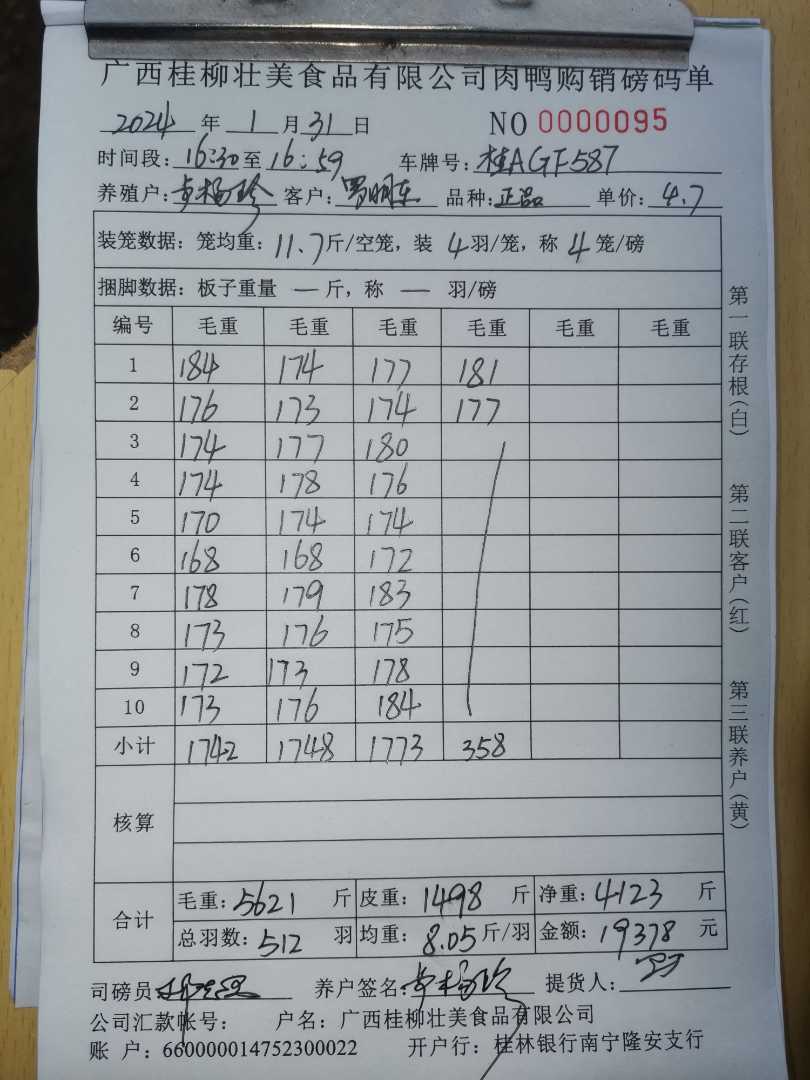 广西桂柳壮美食品有限公司肉鸭购销磅码单
2024 年 1 月 31 日 NO 0000095
时间段: 16:30 至 16:59 车牌号: 桂AGF587
养殖户: 杨珍 客户: 罗明东 品种: 正品 单价: 4.7
装笼数据: 笼均重: 11.7 斤/空笼, 装 4 羽/笼, 称 4 笼/磅
捆脚数据: 板子重量 — 斤, 称 — 羽/磅
编号 毛重 毛重 毛重 毛重 毛重 毛重
1 184 174 177 181
2 176 173 174 177
3 174 177 180
4 174 178 176
5 170 174 174
6 168 168 172
7 178 179 183
8 173 176 175
9 172 173 178
10 173 176 184
小计 1742 1748 1773 358
核算
合计
毛重: 5621 斤 皮重: 1498 斤 净重: 4123 斤
总羽数: 512 羽 均重: 8.05 斤/羽 金额: 19378 元
司磅员 养户签名: 杨珍 提货人:
公司汇款帐号: 户名: 广西桂柳壮美食品有限公司
账 户: 660000014752300022 开户行: 桂林银行南宁隆安支行
第一联存根(白)
第二联客户(红)
第三联养户(黄)